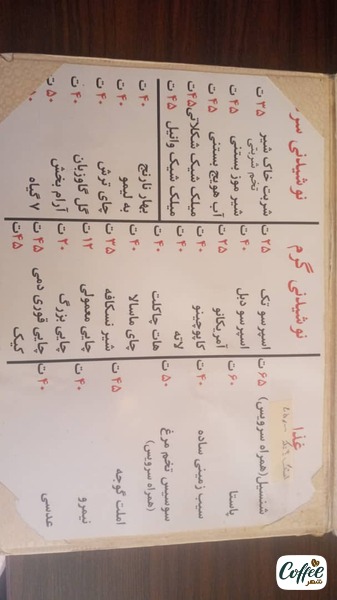 نوشیدنی سر
شربت خاک شیر ۳۵ ت
تخم شربتی
شیر موز بستنی ۴۵ ت
آب هویج بستنی ۴۵ ت
میلک شیک شکلاتی ۴۵ ت
میلک شیک وانیل ۴۵ ت
بهار نارنج ۴۰ ت
به لیمو ۴۰ ت
چای ترش ۴۰ ت
گل گاوزبان ۴۰ ت
آرام بخش ۵۰ ت
۷ گیاه
نوشیدنی گرم
اسپرسو تک ۲۵ ت
اسپرسو دبل ۴۰ ت
آمریکانو ۲۵ ت
کاپوچینو ۴۰ ت
لاته ۴۰ ت
هات چاکلت ۴۰ ت
چای ماسالا ۴۰ ت
شیر نسکافه ۳۵ ت
چایی معمولی ۱۲ ت
چایی بزرگ ۲۰ ت
چایی قوری دمی ۴۵ ت
کیک ۴۵ ت
غذا
شنسیل(همراه سرویس) ۶۵ ت
پاستا ۶۰ ت
سیب زمینی ساده ۴۰ ت
سوسیس تخم مرغ ۵۰ ت
(همراه سرویس)
املت گوجه ۴۵ ت
نیمرو ۴۰ ت
عدسی ۴۰ ت
Coffee
شهر